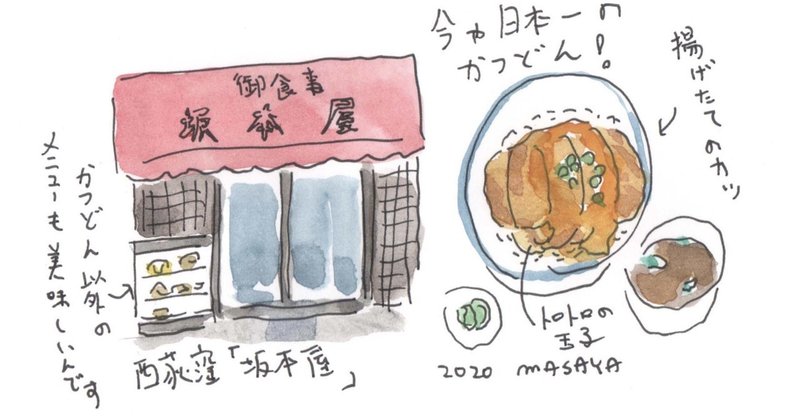 今や日本一の
かつどん!
揚げたてのカツ
御食事
屋
かつどん以外の
メニューも美味しいんです
トロトロの
玉子
西荻窪「坂本屋」
2020 MASAYA